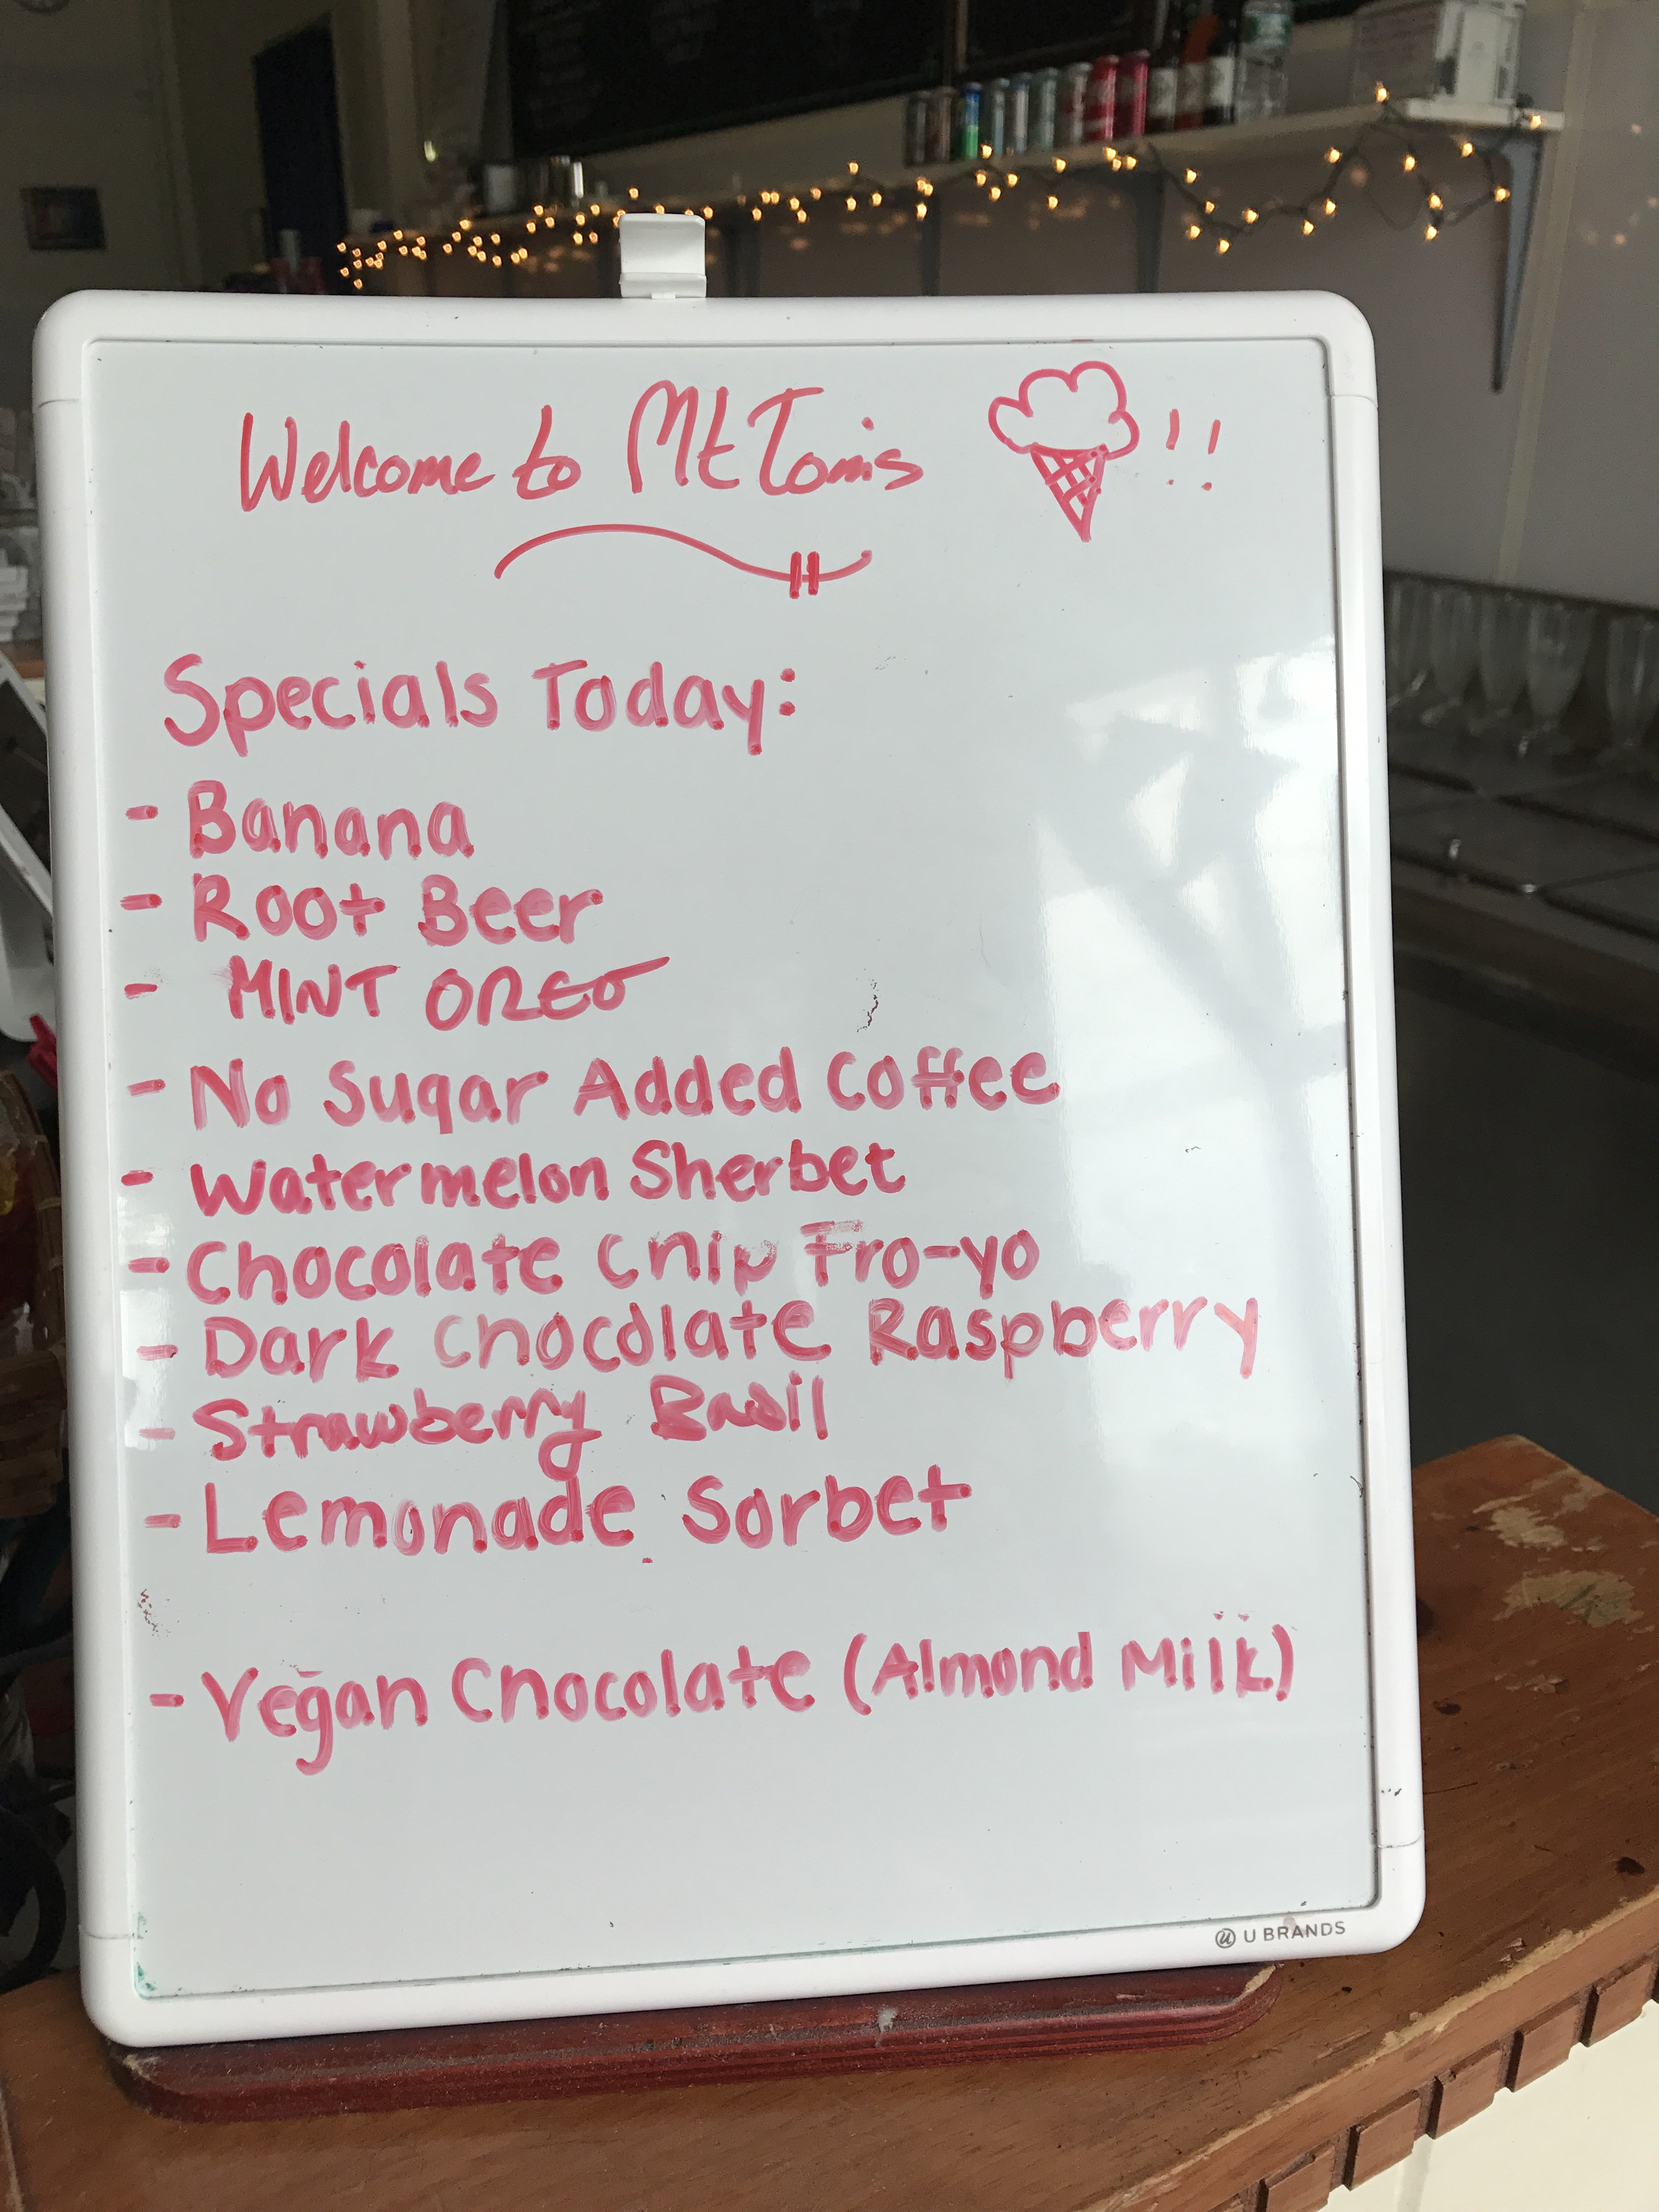 Welcome to Mt Tom's !!
Specials Today:
- Banana
- Root Beer
- MINT OREO
- No Sugar Added Coffee
- Watermelon Sherbet
- Chocolate Chip Fro-yo
- Dark Chocolate Raspberry
- Strawberry Basil
- Lemonade Sorbet
- Vegan Chocolate (Almond Milk)
U BRANDS